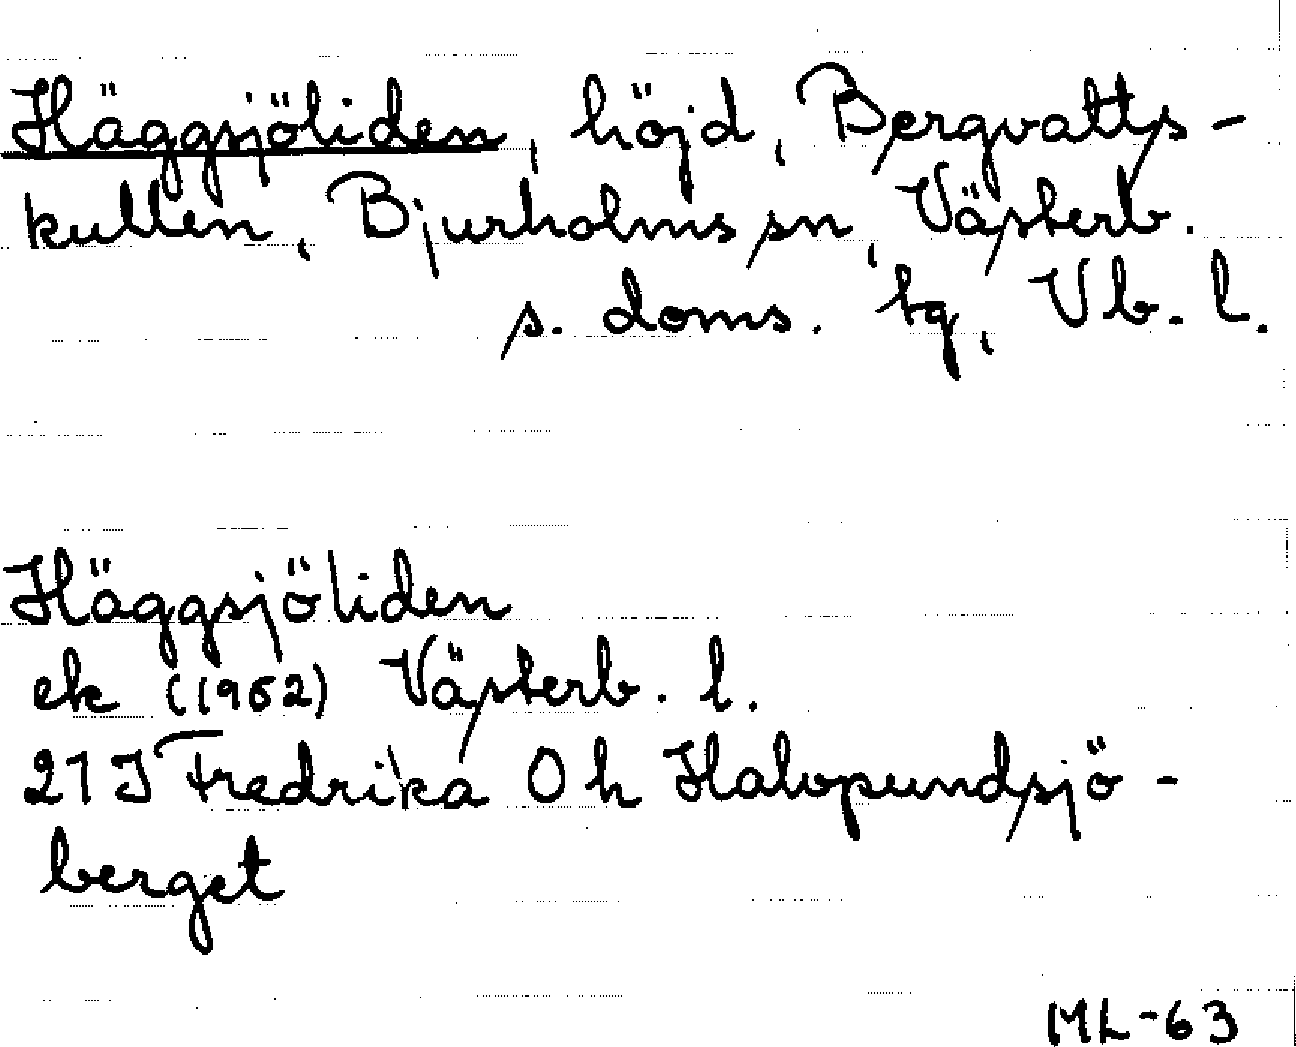 Häggsjöliden, höjd, Bergvatts-
kullen, Bjurholms sn, Västerb.
s. doms. tg, Vb. l.
Häggsjöliden
ek (1962) Västerb. l.
21 J Fredrika 0 h Halvpundsjö-
berget
ML-63